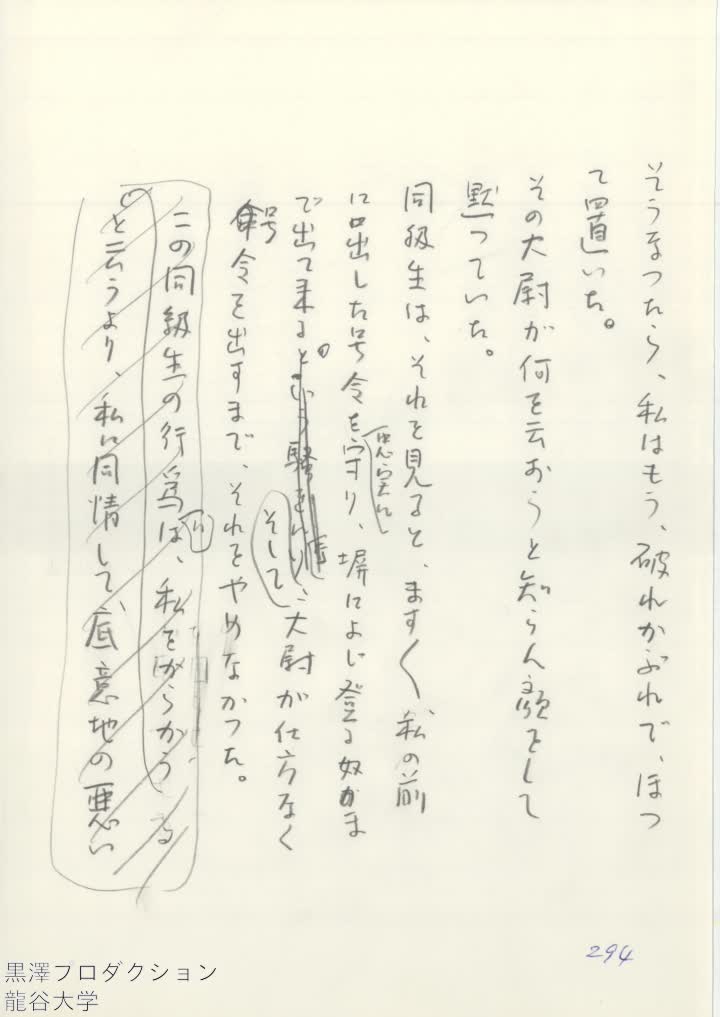 そうなつたら、私はもう、破れかぶれで、ほつ
て置いた。
その大尉が何を云おうと知らん顔をして
黙つていた。
同級生は、それを見ると、ます〱、私の前
に口出した号令を忠実に守り、塀によじ登る奴かま
で出て来る
そして、大尉が仕方なく
号令を出すまで、それをやめなかつた。
この同級生の行為は、私をからかう
と云うより、私に同情して、底意地の悪い
294
黒澤プロダクション
龍谷大学